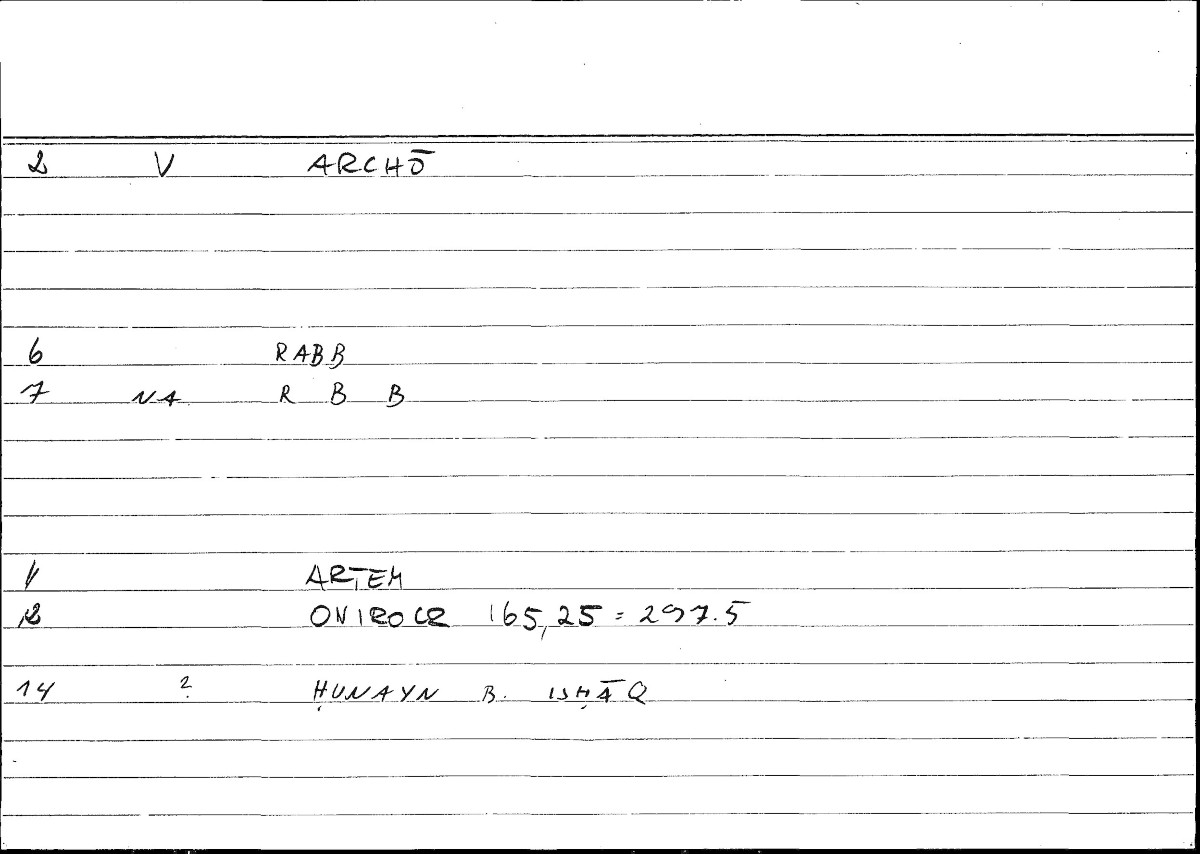 2 V ARCHŌ
6 RABB
7 NA R B B
11 ARTEM
12 ONIROCR 165,25 = 297.5
14 ? ḤUNAYN B. ISḤĀQ